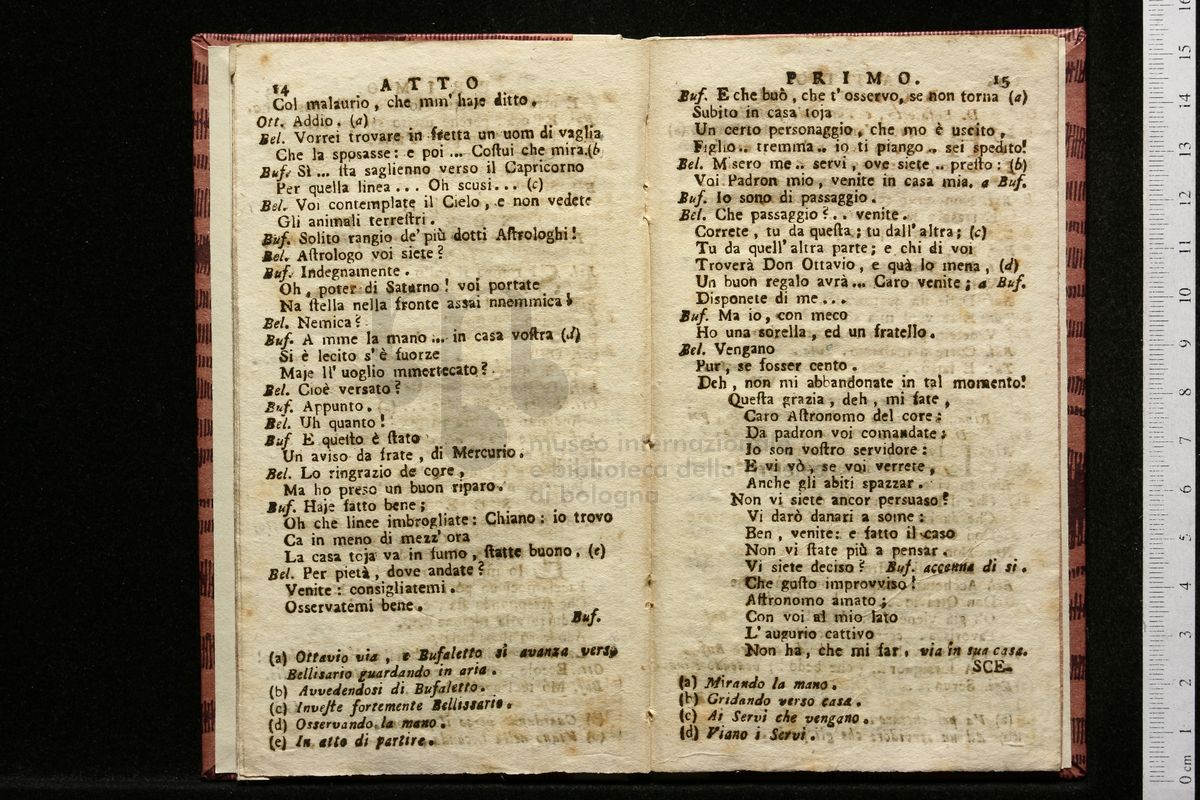 14 ATTO
Col malaurio, che mm' haje ditto.
Ott. Addio. (a)
Bel. Vorrei trovare in fretta un uom di vaglia
Che la sposasse: e poi ... Costui che mira.(b
Buf. Sì ... sta saglienno verso il Capricorno
Per quella linea ... Oh scusi... (c)
Bel. Voi contemplate il Cielo, e non vedete
Gli animali terrestri.
Buf. Solito rangio de' più dotti Astrologhi!
Bel. Astrologo voi siete?
Buf. Indegnamente.
Oh, poter di Saturno! voi portate
Na stella nella fronte assai nnemmica!
Bel. Nemica?
Buf. A mme la mano ... in casa vostra (d)
Si è lecito s' è fuorze
Maje ll' uoglio mmertecato?
Bel. Cioè versato?
Buf. Appunto.
Bel. Uh quanto!
Buf E questo è stato
Un aviso da frate, di Mercurio.
Bel. Lo ringrazio de core,
Ma ho preso un buon riparo.
Buf. Haje fatto bene;
Oh che linee imbrogliate: Chiano: io trovo
Ca in meno di mezz' ora
La casa toja va in fumo, statte buono. (e)
Bel. Per pietà, dove andate?
Venite: consigliatemi.
Osservatemi bene.
Buf.
(a) Ottavio via, e Bufaletto si avanza verso
Bellisario guardando in aria.
(b) Avvedendosi di Bufaletto.
(c) Investe fortemente Bellissario.
(d) Osservando la mano.
(e) In atto di partire.
PRIMO. 15
Buf. E che buò, che t' osservo, se non torna (a)
Subito in casa toja
Un certo personaggio, che mo è uscito,
Figlio.. tremma.. io ti piango.. sei spedito!
Bel. Misero me.. servi, ove siete .. presto: (b)
Voi Padron mio, venite in casa mia. a Buf.
Buf. Io sono di passaggio.
Bel. Che passaggio?.. venite.
Correte, tu da questa; tu dall' altra; (c)
Tu da quell' altra parte; e chi di voi
Troverà Don Ottavio, e quà lo mena, (d)
Un buon regalo avrà... Caro venite; a Buf.
Disponete di me...
Buf. Ma io, con meco
Ho una sorella, ed un fratello.
Bel. Vengano
Pur, se fosser cento.
Deh, non mi abbandonate in tal momento!
Questa grazia, deh, mi fate,
Caro Astronomo del core:
Da padron voi comandate;
Io son vostro servidore:
E vi vò, se voi verrete,
Anche gli abiti spazzar.
Non vi siete ancor persuaso?
Vi darò danari a some:
Ben, venite: e fatto il caso
Non vi state più a pensar.
Vi siete deciso? Buf. accenna di si.
Che gusto improvviso!
Astronomo amato;
Con voi al mio lato
L' augurio cattivo
Non ha, che mi far, via in sua casa.
SCE-
(a) Mirando la mano.
(b) Gridando verso casa.
(c) Ai Servi che vengano.
(d) Viano i Servi.
museo internazionale
e biblioteca della musica
di bologna
0 cm 1 2 3 4 5 6 7 8 9 10 11 12 13 14 15 16